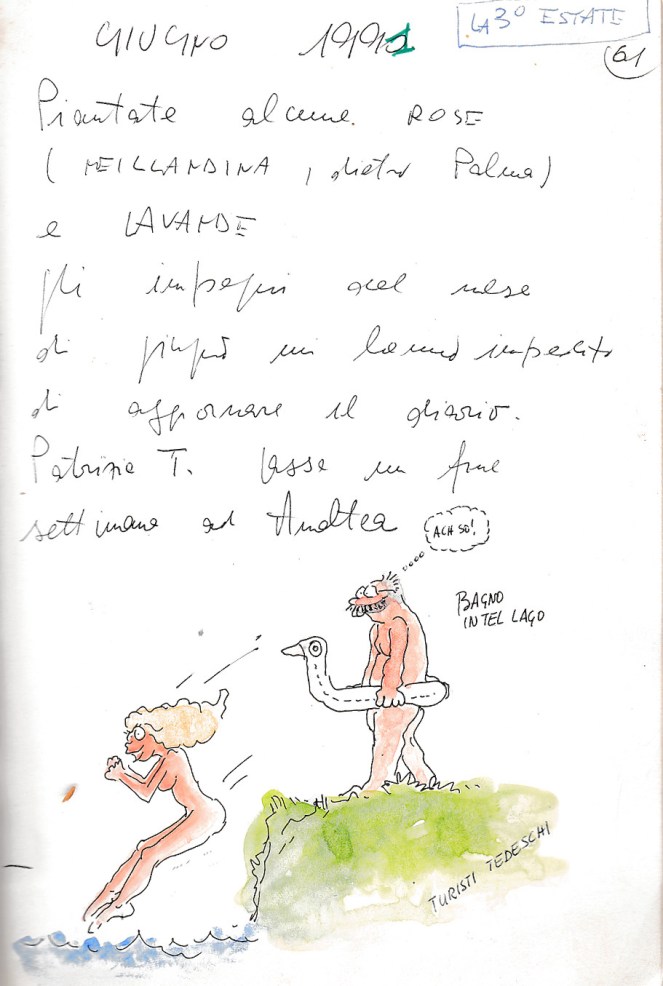 GIUGNO 1991
LA 3° ESTATE
61
Piantate alcune ROSE
(MEILLANDINA, dietro Palma)
e LAVANDE
gli impegni del mese
di giugno mi hanno impedito
di aggiornare il diario.
Patrizia T. un fine
settimana ad Andtea
ACH SO!
BAGNO
INTEL LAGO
TURISTI TEDESCHI